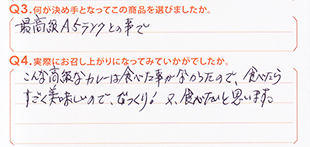 Q3.何が決め手となってこの商品を選びましたか。
最高級A5ランクとの事で
Q4.実際にお召し上がりになってみていかがでしたか。
こんな高級なカレーは食べた事がなかったので、食べたら
すごく美味しいので、びっくり! 又、食べたいと思います。